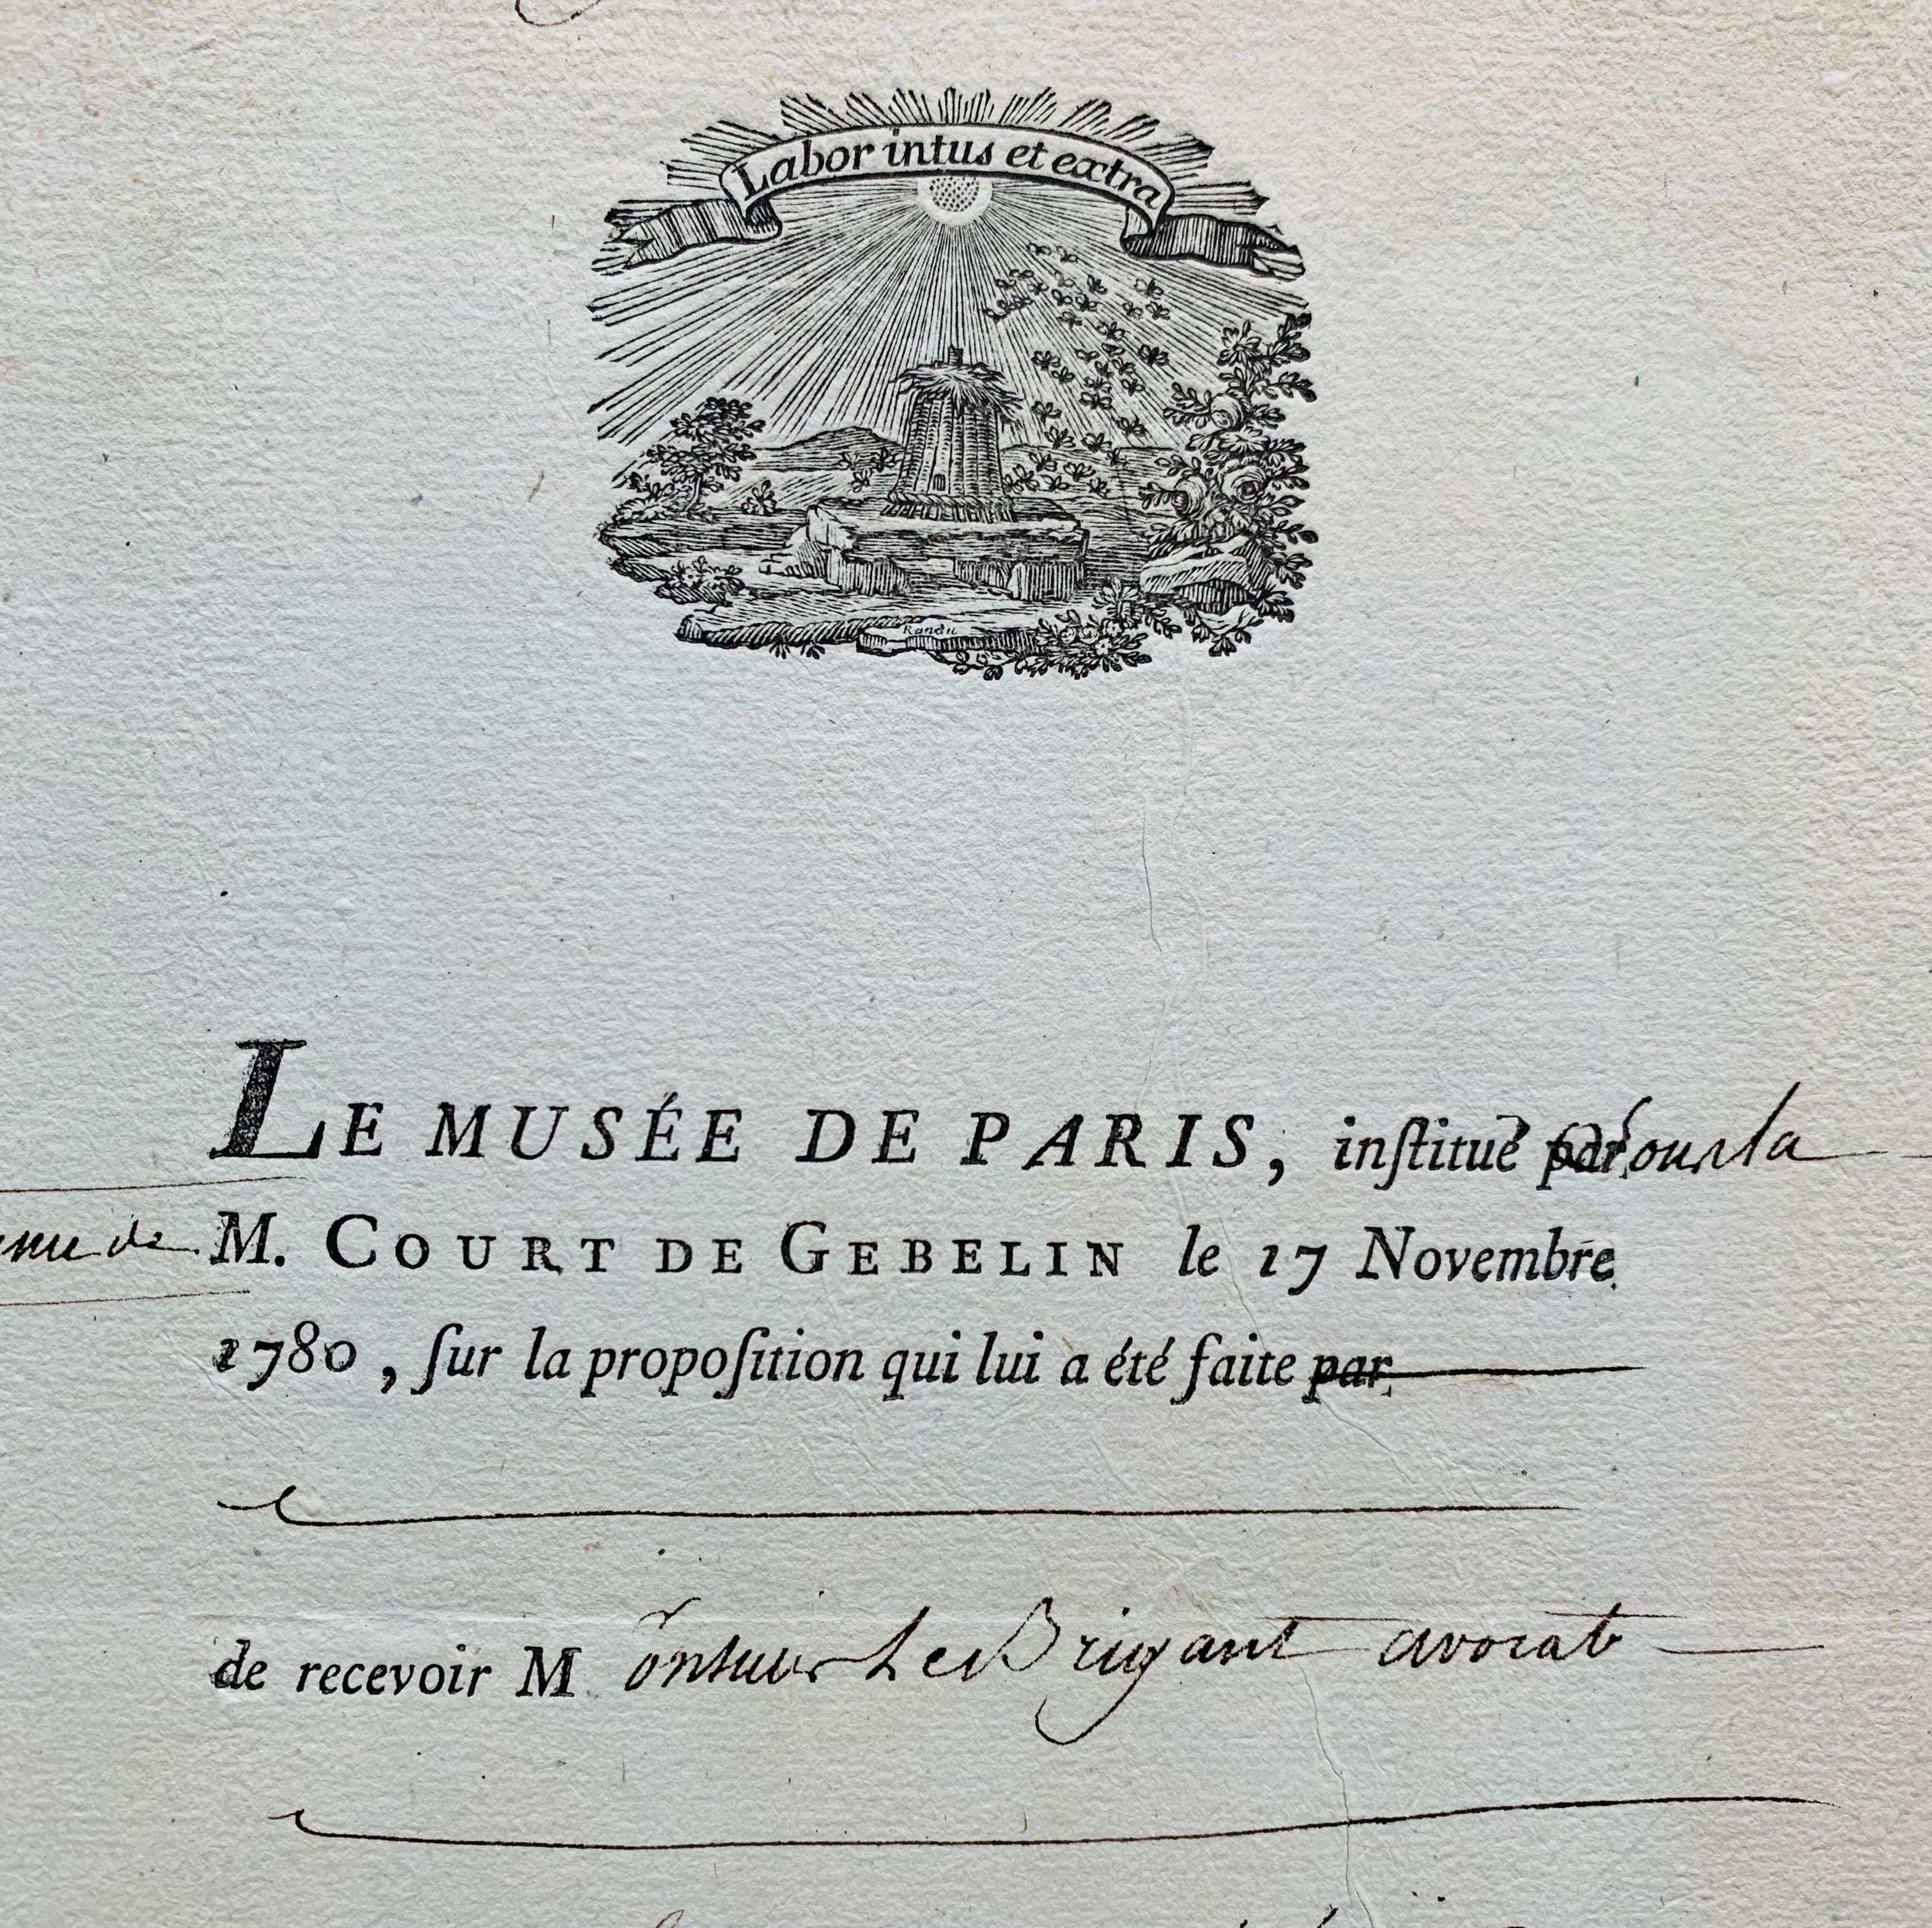 Labor intus et extra
Randu
LE MUSÉE DE PARIS, inſtitué par sous la
de M. COURT DE GEBELIN le 17 Novembre
1780, ſur la propoſition qui lui a été faite par
de recevoir Monsieur Le Brigant avocat